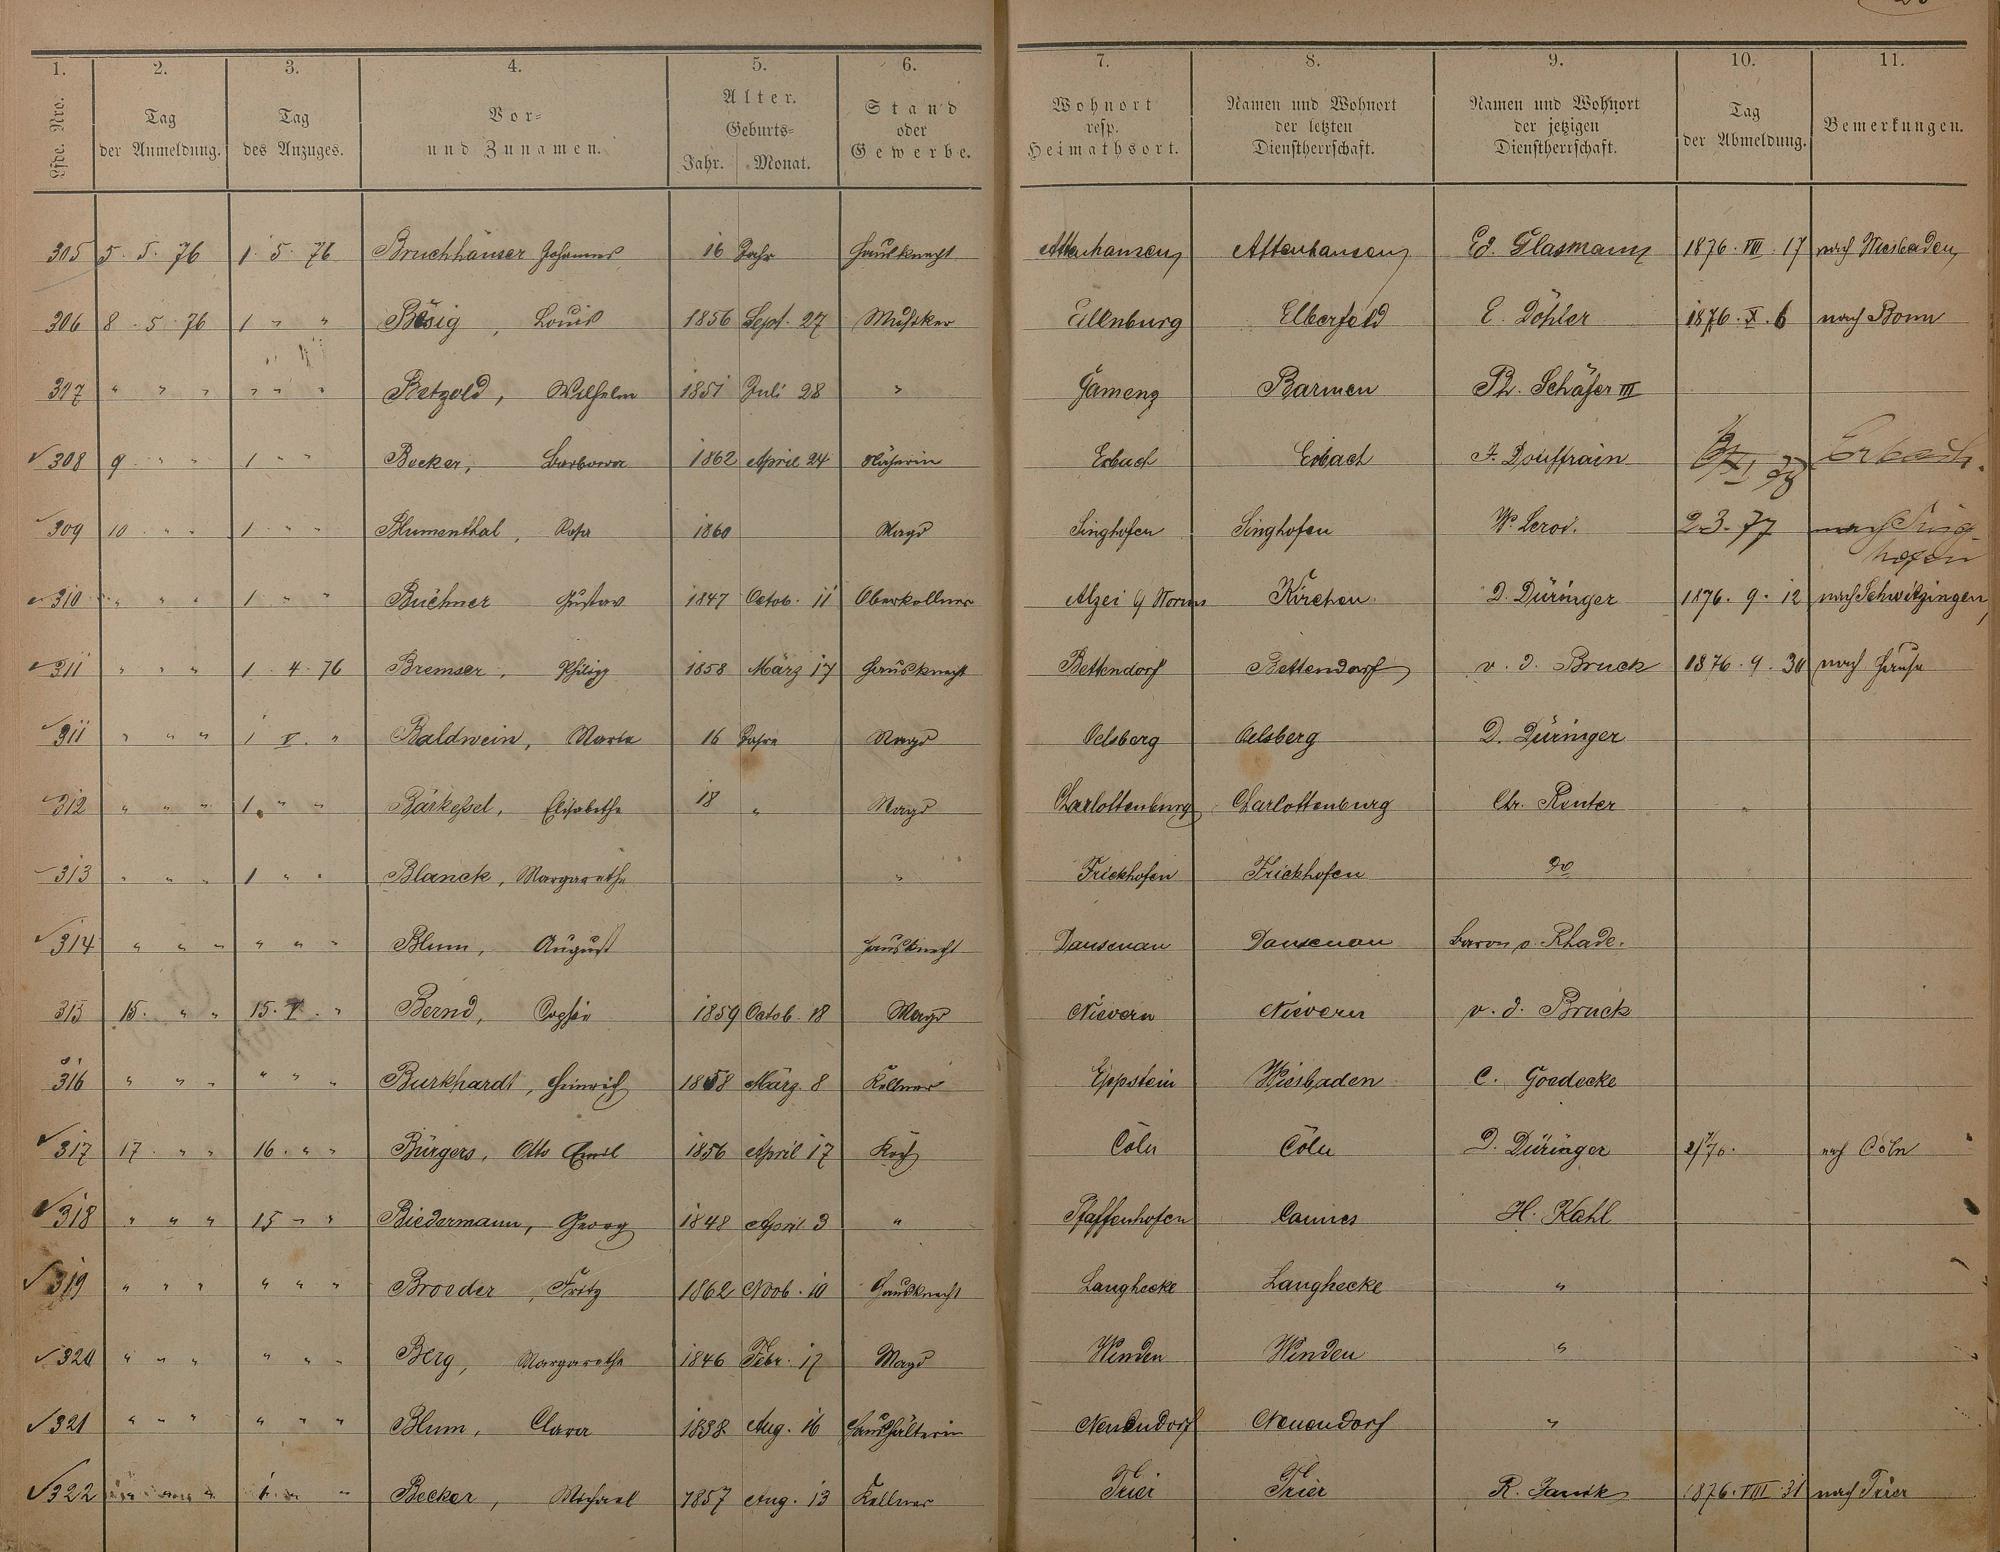 1. 2. 3. 4. 5. 6. 7. 8. 9. 10. 11.
Lfde. Nro. Tag der Anmeldung. Tag des Anzuges. Vor- und Zunamen. Alter. Geburts- Jahr. Monat. Stand oder Gewerbe. Wohnort resp. Heimathsort. Namen und Wohnort der letzten Dienstherrschaft. Namen und Wohnort der jetzigen Dienstherrschaft. Tag der Abmeldung. Bemerkungen.
305 5. 5. 76 1. 5. 76 Bruchhäuser Johannes 16 Jahr Hausknecht Attenhausen Attenhausen Ed. Glasmann 1876. VIII. 17 nach Wiesbaden
306 8. 5. 76 1 " " Bösig, Louis 1856 Sept. 27 Musiker Eilenburg Elberfeld E. Döhler 1876. X. 6 nach Bonn
307 " " " " " " Betzold, Wilhelm 1851 Juli 28 " Camenz Barmen Ph. Schäfer III
308 9 " " 1 " " Becker, Barbara 1862 April 24 Näherin Erbach Erbach F. Douffrain Erbach.
309 10 " " 1 " " Blumenthal, Rosa 1860 Magd Singhofen Singhofen W. Leroi. 2.3.77 nach Sing-
hofen
310 " " " 1 " " Büchner Gustav 1847 Octob. 11 Oberkellner Alzei Worms Kirchen D. Düringer 1876. 9. 12 nach Schwitzingen
311 " " " 1. 4. 76 Bremser, Philipp 1858 März 17 Hausknecht Bettendorf Bettendorf v. d. Bruck 1876. 9. 30 nach Hause
311 " " " 1 V. " Baldwein, Maria 16 Jahre Magd Oelsberg Oelsberg D. Düringer
312 " " " 1. " " Bärkessel, Elisabethe 18 " Magd Charlottenburg Charlottenburg Chr. Reuter
313 " " " 1 " " Blanck, Margarethe " Frickhofen Frickhofen do
314 " " " " " " Blum, August Hausknecht Dausenau Dausenau Baron v. Rhade.
315 15. " " 15. V. " Bernd, Sophie 1859 Octob. 18 Magd Nievern Nievern v. d. Bruck
316 " " " " " " Burkhardt, Heinrich 1858 März. 8 Kellner Eppstein Wiesbaden C. Goedecke
317 17. " " 16. " " Bürgers, Otto Emil 1856 April 17 Koch Cöln Cöln D. Düringer nach Cöln
318 " " " 15 " " Biedermann, Georg 1848 April 3 " Pfaffenhofen Cannes H. Kahl
319 " " " " " " Broeder, Fritz 1862 Novb. 10 Hausknecht Langhecke Langhecke "
320 " " " " " " Berg, Margarethe 1846 Febr. 17 Magd Winden Winden "
321 " " " " " " Blum, Clara 1838 Aug. 16 Haushälterin Neuendorf Neuendorf "
322 " " " 1. " " Becker, Michael 1857 Aug. 13 Kellner Trier Trier R. 1876. VIII. 31 nach Trier